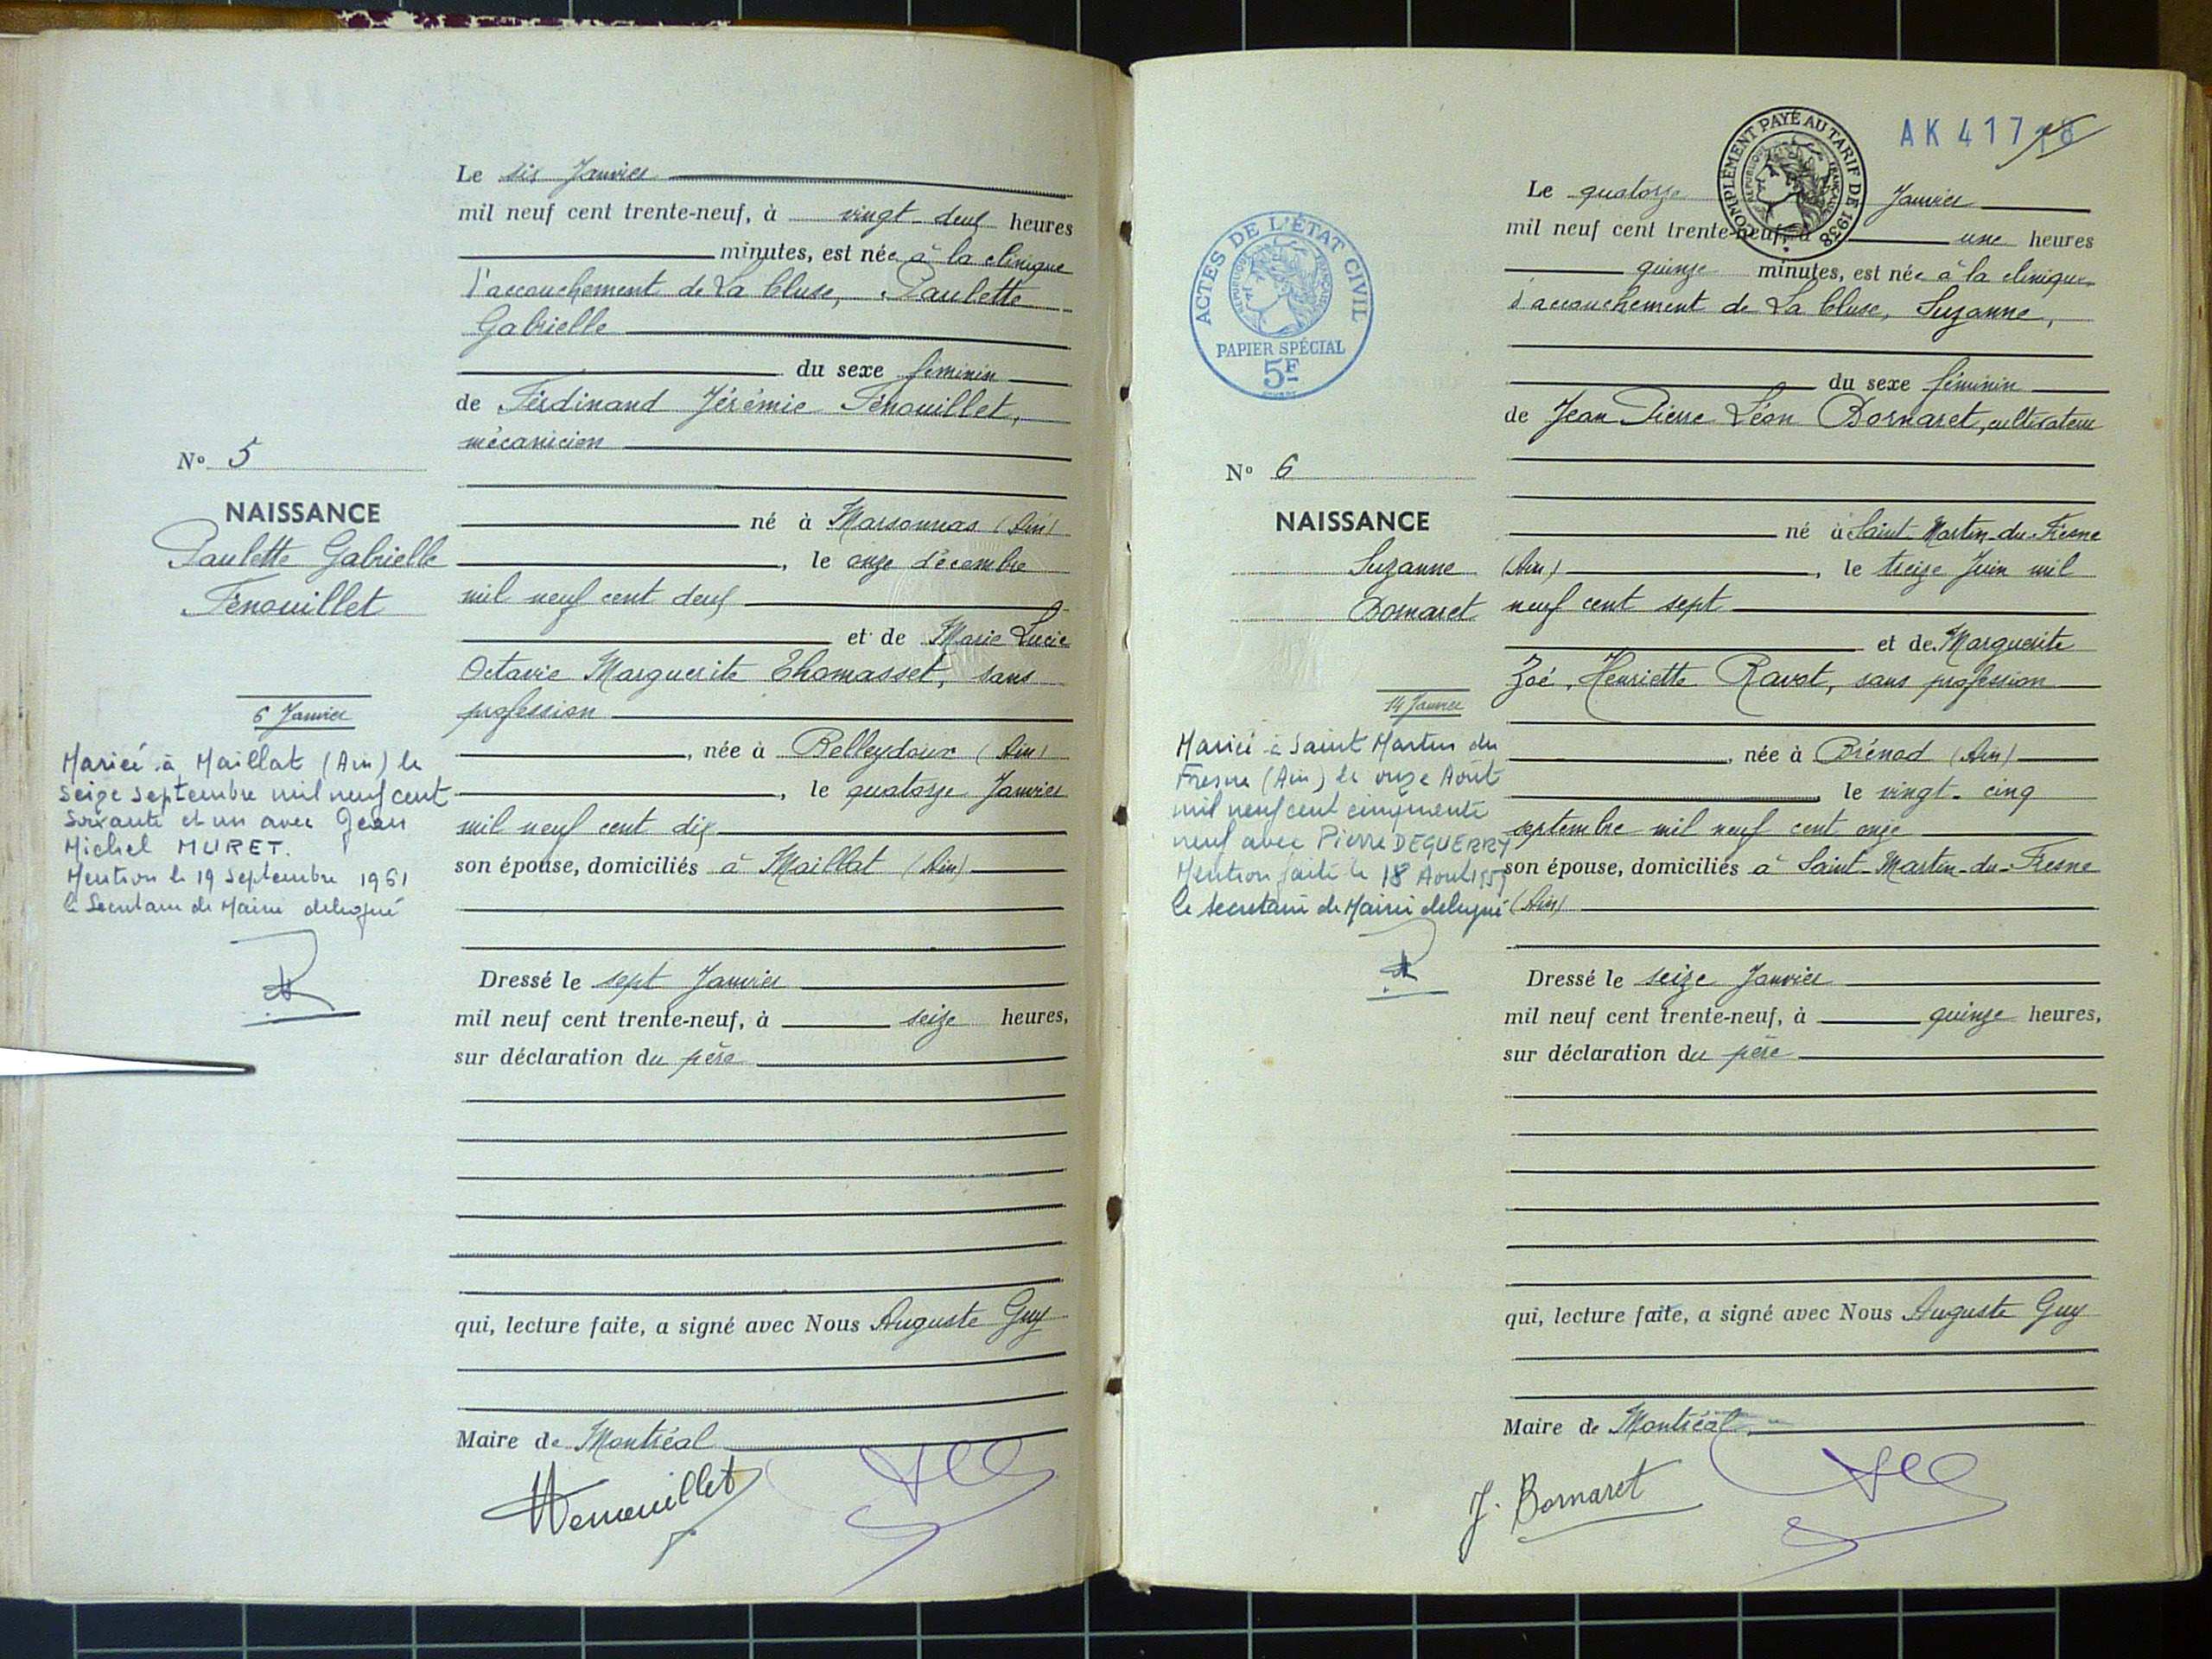 Le six Janvier
mil neuf cent trente-neuf, à vingt-deux heures
minutes, est née à la clinique
d'accouchement de La Cluse, Paulette
Gabrielle
du sexe féminin
de Ferdinand Jérémie Fenouillet,
mécanicien
né à Marsonnas (Ain)
, le onze décembre
mil neuf cent deux
et de Marie Lucie
Octavie Marguerite Thomasset, sans
profession
, née à Belleydoux (Ain)
, le quatorze Janvier
mil neuf cent dix
son épouse, domiciliés à Maillat (Ain)
Dressé le sept Janvier
mil neuf cent trente-neuf, à seize heures,
sur déclaration du père
qui, lecture faite, a signé avec Nous Auguste Guy
Maire de Montréal
Nº 5
NAISSANCE
Paulette Gabrielle
Fenouillet
6 Janvier
Mariée à Maillat (Ain) le
seize septembre mil neuf cent
soixante et un avec Jean
Michel MURET.
Mention le 19 septembre 1961
le Secrétaire de Mairie délégué
AK 417
COMPLÉMENT PAYÉ AU TARIF DE 1938
RÉPUBLIQUE FRANÇAISE
ACTES DE L'ÉTAT CIVIL
RÉPUBLIQUE FRANÇAISE
PAPIER SPÉCIAL
5F
Le quatorze Janvier
mil neuf cent trente-neuf, à une heures
quinze minutes, est née à la clinique
d'accouchement de La Cluse, Suzanne,
du sexe féminin
de Jean Pierre Léon Bornaret, cultivateur
né à Saint-Martin-du-Fresne
(Ain) , le treize Juin mil
neuf cent sept
et de Marguerite
Zoé, Henriette Ravot, sans profession
, née à Brénod (Ain)
le vingt-cinq
septembre mil neuf cent onze
son épouse, domiciliés à Saint-Martin-du-Fresne
(Ain)
Dressé le seize Janvier
mil neuf cent trente-neuf, à quinze heures,
sur déclaration du père
qui, lecture faite, a signé avec Nous Auguste Guy
Maire de Montréal
J. Bornaret
Nº 6
NAISSANCE
Suzanne
Bornaret
14 Janvier
Mariée à Saint Martin du
Fresne (Ain) le onze Août
mil neuf cent cinquante
neuf avec Pierre DEGUERRY
Mention faite le 18 Août 1959
le secrétaire de Mairie délégué